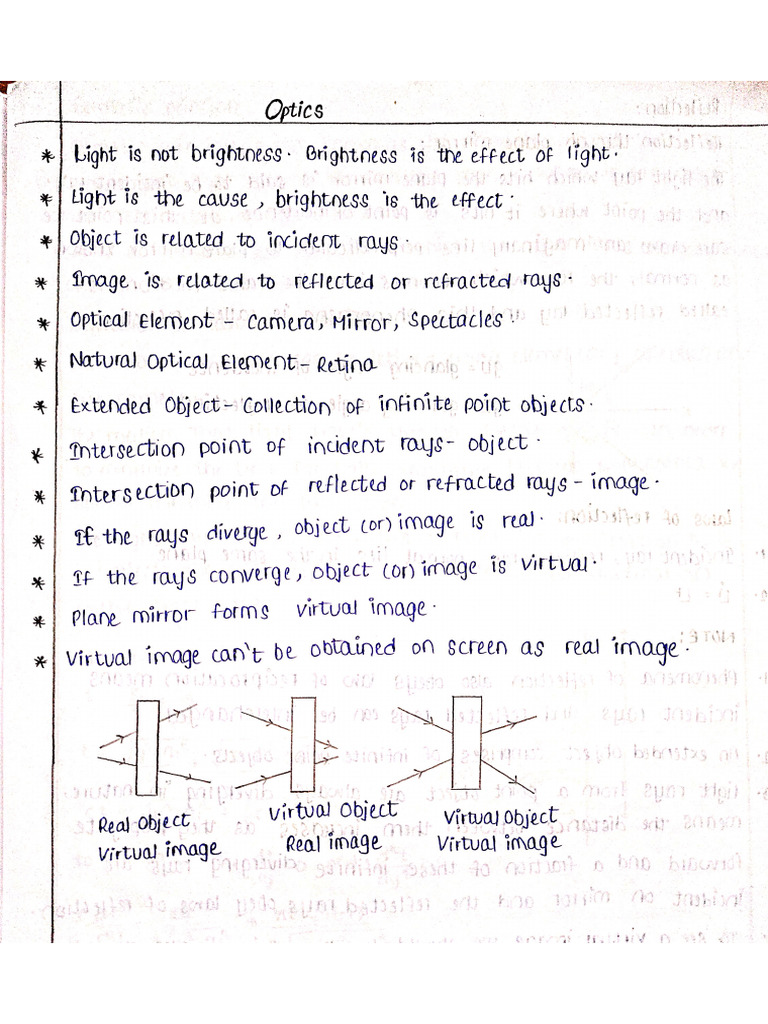 Optics
* Light is not brightness. Brightness is the effect of light.
* Light is the cause, brightness is the effect.
* Object is related to incident rays.
* Image is related to reflected or refracted rays.
* Optical Element - Camera, Mirror, Spectacles.
* Natural Optical Element - Retina
* Extended Object - Collection of infinite point objects.
* Intersection point of incident rays - object.
* Intersection point of reflected or refracted rays - image.
* If the rays diverge, object (or) image is real.
* If the rays converge, object (or) image is virtual.
* Plane mirror forms virtual image.
* Virtual image can't be obtained on screen as real image.
Real Object
Virtual image
Virtual Object
Real image
Virtual Object
Virtual image